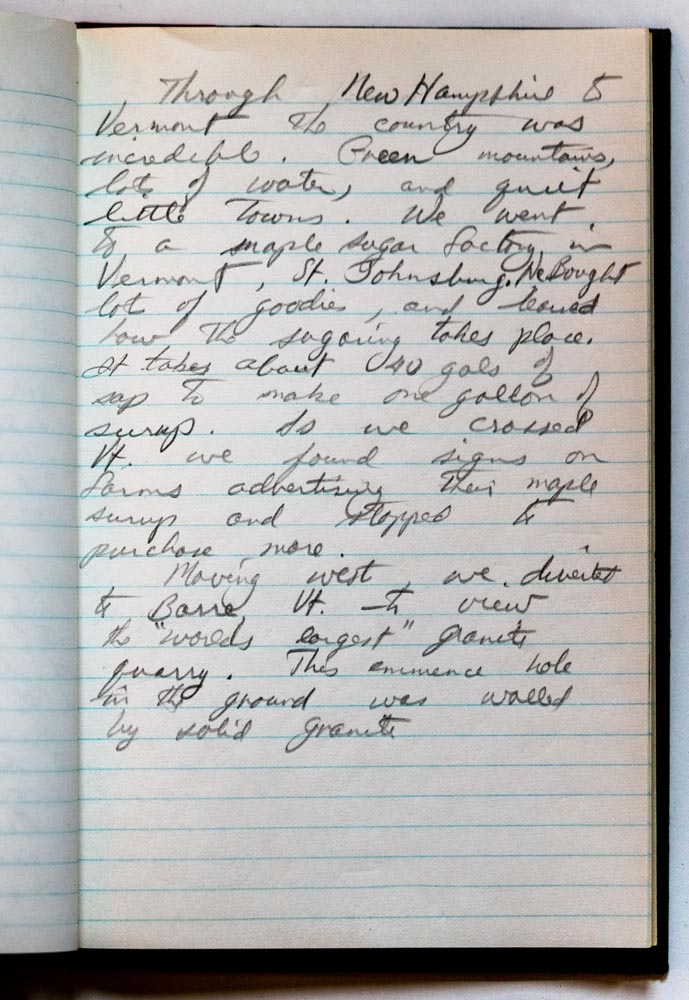 Through New Hampshire to
Vermont the country was
incredible. Green mountains,
lots of water, and quiet
little towns. We went
to a maple sugar factory in
Vermont, St. Johnsburg. We Bought
lots of goodies, and learned
how the sugaring takes place.
It takes about 40 gals of
sap to make one gallon of
surup. As we crossed
Vt. we found signs on
farms advertising their maple
surup and stopped to
purchase more.
Moving west, we diverted
to Barre, Vt. to view
the "worlds largest" granite
quarry. This emmence hole
in the ground was walled
by solid granite